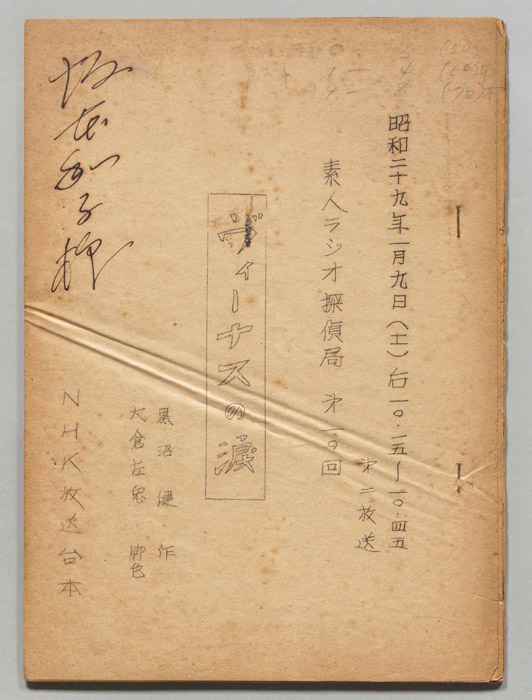 昭和二十九年一月九日(土)后一〇・一五〜一〇・四五
才二放送
素人ラジオ探偵局 才一〇回
ヴィーナスの涙
黒沼 健・作
大倉左兎 脚色
NHK放送台本
坂本和子様